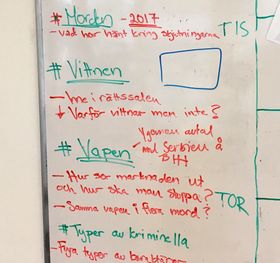 # Morden - 2017
- vad har hänt kring skjutningarna
TIS
# Vittnen
- Inne i rättssalen
Varför vittnar man inte?
Vgenan avtal
med Serbien å
BIH
# Vapen
- Hur ser marknaden ut
och hur ska man stoppa?
TOR
- Samma vapen i flera mord?
# Typer av kriminella
- Fyra typer av